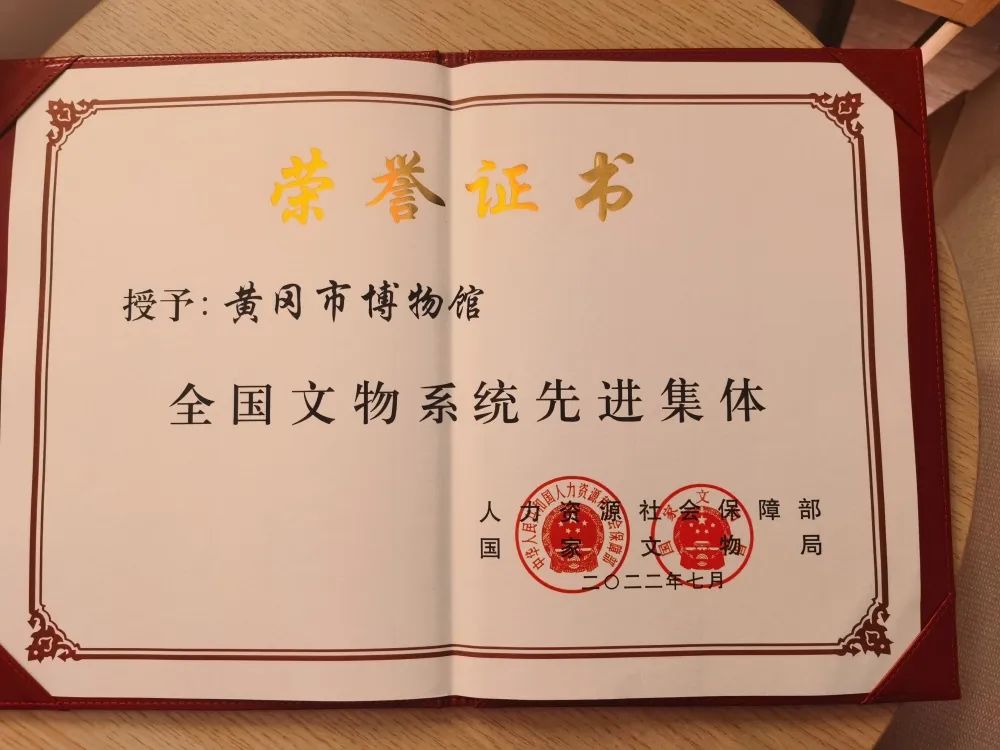 荣誉证书
授予：黄冈市博物馆
全国文物系统先进集体
人力资源社会保障部
国家文物局
二〇二二年七月
中华人民共和国人力资源和社会保障部
国家文物局